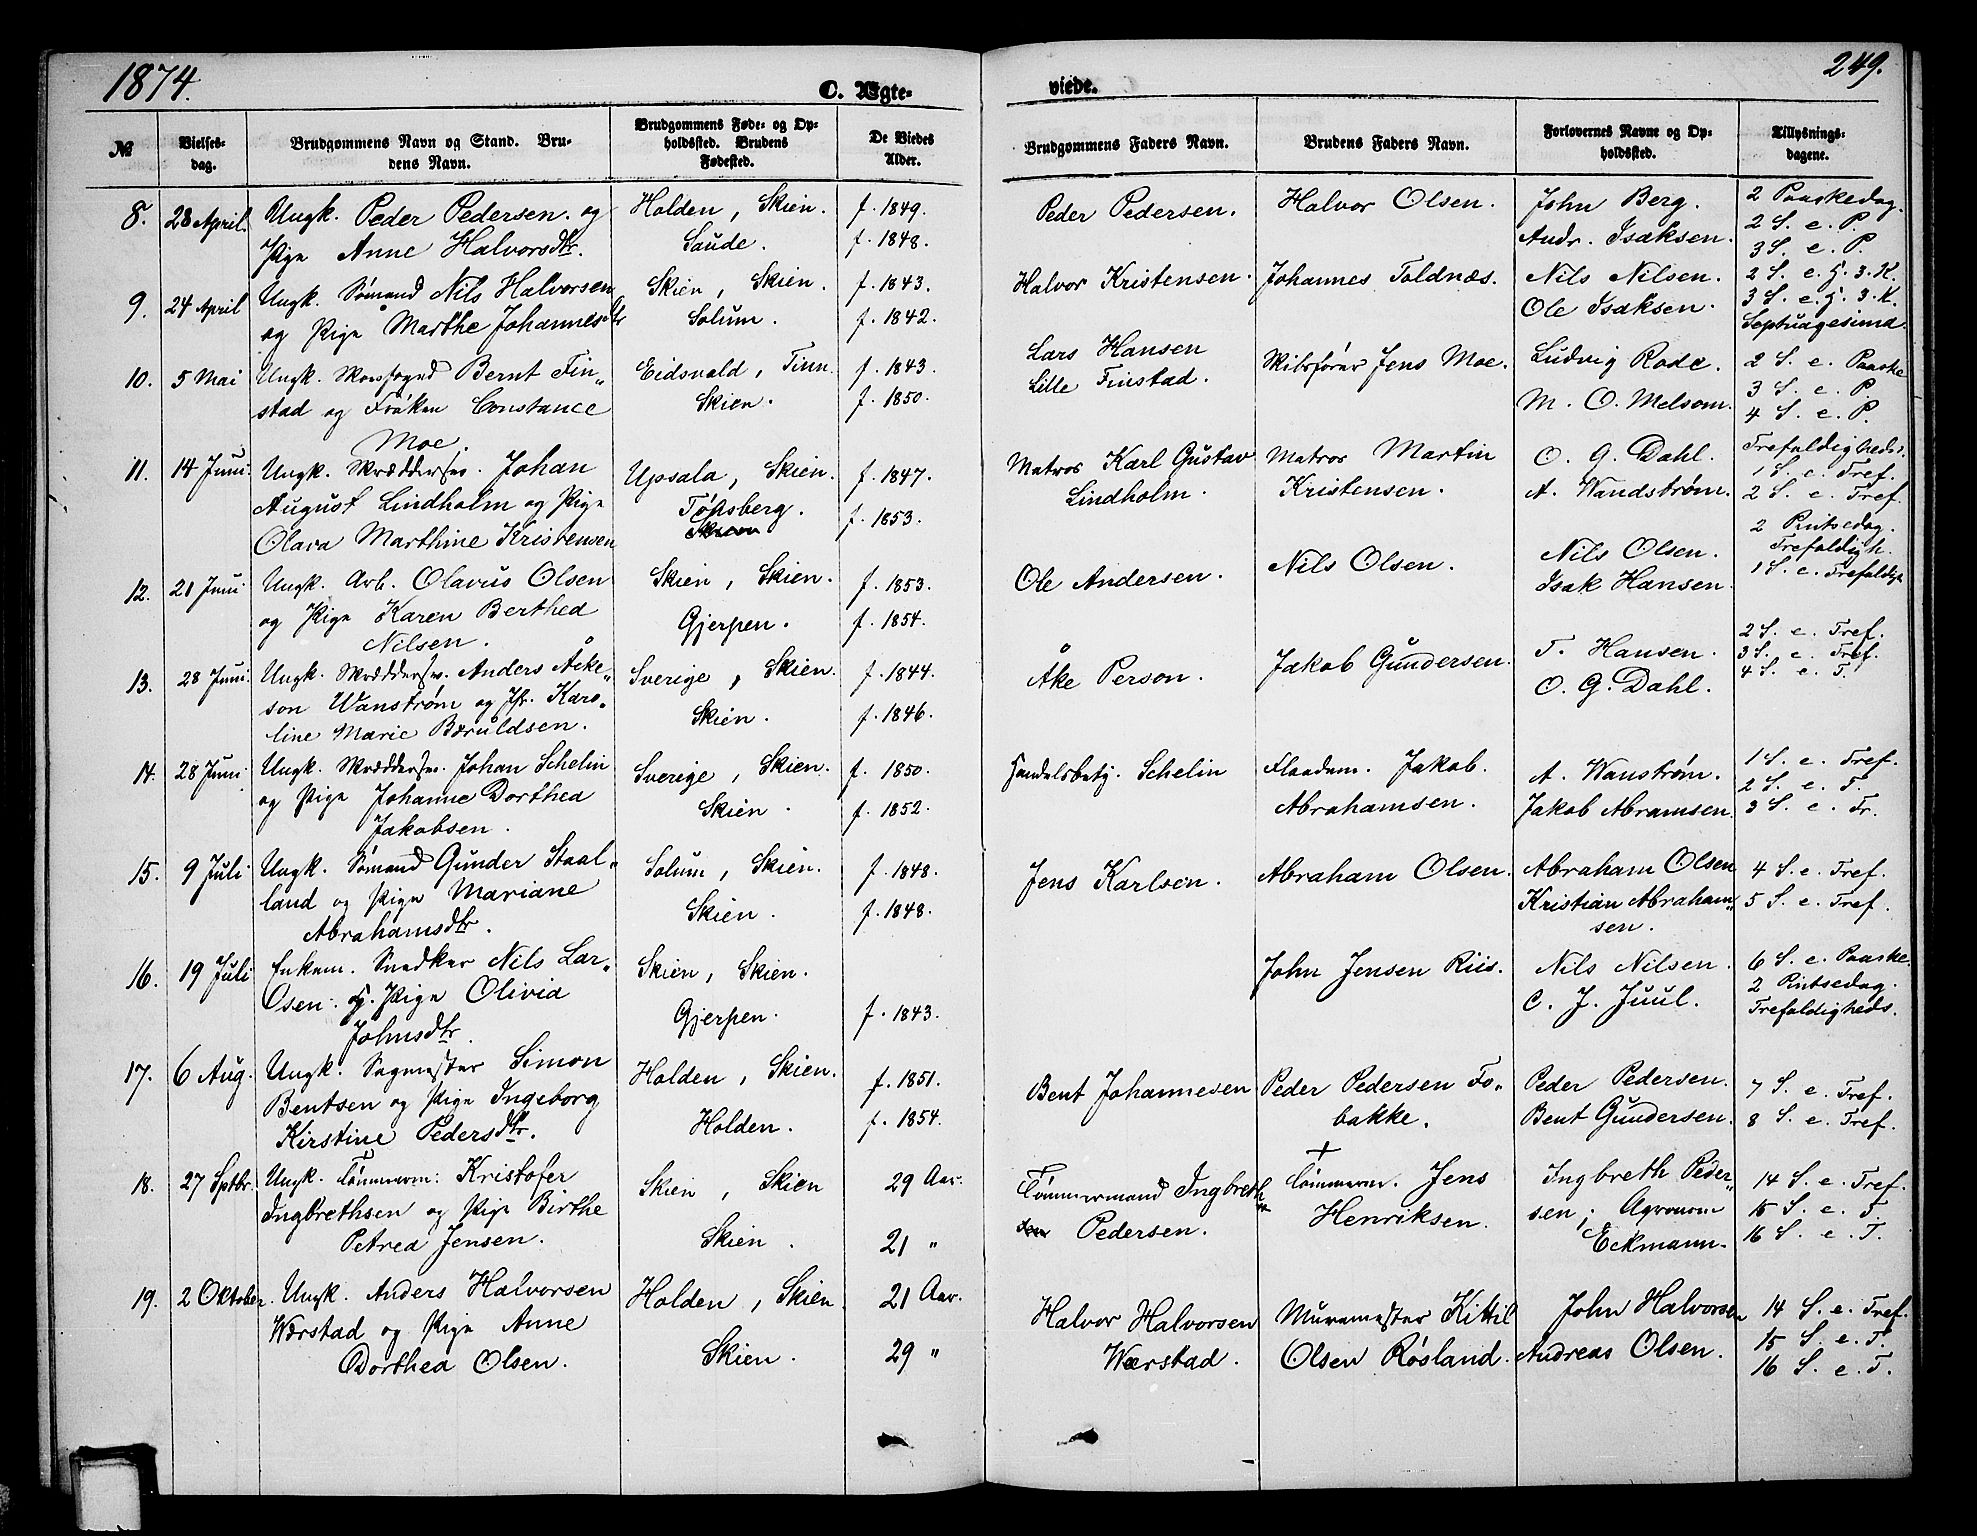 1874.
C. Ægte-
viede.
249.
№
Vielses-
dag.
Brudgommens Navn og Stand. Bru-
dens Navn.
Brudgommens Føde- og Op-
holdssted. Brudens
Fødested.
De Viedes
Alder.
Brudgommens Faders Navn.
Brudens Faders Navn.
Forlovernes Navne og Op-
holdssted.
Tillysnings-
dagene.
8. 28 April. Ungk. Peder Pedersen. og Holden, Skien. f. 1849. Peder Pedersen. Halvor Olsen. John Berg. 2 Paaskedag.
Pige Anne Halvorsdtr. Saude. f. 1848. Andr. Isaksen. 2 S. e. P.
3 S. e. P.
9. 24 April Ungk. Sømand Nils Halvorsen Skien, Skien. f. 1843. Halvor Kristensen. Johannes Foldnæs. Nils Nilsen. 2 S. e. H. 3. K.
og Pige Marthe Johannesdtr Solum. f. 1842. Ole Isaksen. 3 S. e. H. 3. K.
Septuagesima.
10. 5 Mai Ungk. Bernt Fin„ Eidsvold, Tinn f. 1843. Lars Hansen Jens Moe. Ludvig Rode. 2 S. e. Paaske
stad og Frøken Constance Skien. f. 1850. Lille Finstad. M. O. Melsom. 3 S. e. P.
Moe. 4 S. e. P.
11. 14 Juni. Ungk. Skræddersv. Johan Upsala, Skien. f. 1847. Matros Karl Gustav Matros Martin O. G. Dahl. Trefoldigheds.
August Lindholm og Pige Tønsberg. f. 1853. Lindholm. Kristensen. A. Wandstrøm. 1 S. e. Tref.
Olava Marthine Kristensen Skien 2 S. e. Tref.
12. 21 Juni Ungk. Arb. Olavus Olsen Skien, Skien. f. 1853. Ole Andersen. Nils Olsen. Nils Olsen. 2 Pintsedag.
og Pige Karen Berthea Gjerpen. f. 1854. Isak Hansen. Trefoldigh.
Nilsen. 1 S. e. Trefoldigh
13. 28 Juni. Ungk. Skræddersv. Anders Åke„ Sverige, Skien. f. 1844. Åke Person. Jakob Gundersen. T. Hansen. 2 S. e. Tref.
son Wanstrøm og Jfr. Karo„ Skien. f. 1846. O. G. Dahl. 3 S. e. Tref.
line Marie Børuldsen. 4 S. e. T.
14. 28 Juni Ungk. Skræddersv. Johan Schelin Sverige, Skien. f. 1850. Handelsbetj. Schelin Flaadem. Jakob A. Wanstrøm. 1 S. e. Tref.
og Pige Johanne Dorthea Skien. f. 1852. Abrahamsen. Jakob Abramsen. 2 S. e. T.
Jakobsen. 3 S. e. Tr.
15. 9 Juli Ungk. Sømand Gunder Staal„ Solum, Skien. f. 1848. Jens Karlsen. Abraham Olsen. Abraham Olsen 4 S. e. Tref.
land og Pige Mariane Skien. f. 1848. Kristian Abraham„ 5 S. e. Tref.
Abrahamsdtr. sen.
16. 19 Juli Enkem. Snedker Nils Lar„ Skien, Skien. John Jensen Riis. Nils Nilsen. 6 S. e. Paaske.
Osen. og. Pige Olivia Gjerpen. f. 1843. C. J. Juul. 2 Pintsedag.
Johnsdtr. Trefoldigheds.
17. 6 Aug. Ungk. Sagmester Simon Holden, Skien. f. 1851. Bent Johannesen Peder Pedersen Fo„ Peder Pedersen. 7 S. e. Tref.
Bentsen og Pige Ingeborg Holden. f. 1854. bakke. Bent Gundersen. 8 S. e. Tref.
Kirstine Pedersdtr.
18. 27 Sptbr. Ungk. Tømmerm: Kristofer Skien, Skien 29 Aar. Tømmermand Ingbreth Tømmerm. Jens Ingbreth Peder„ 14 S. e. Tref.
Ingbrethsen og Pige Birthe Skien. 21 " Pedersen. Henriksen. sen; Agronom 15 S. e. T.
Petrea Jensen. Eckmann. 16 S. e. T.
19. 2 Oktober. Ungk. Anders Halvorsen Holden, Skien. 21 Aar. Halvor Halvorsen Muremester Kittil John Halvorsen 14 S. e. Tref.
Wærstad og Pige Anne Skien. 29 " Wærstad. Olsen Røsland. Andreas Olsen. 15 S. e. T.
Dorthea Olsen. 16 S. e. T.